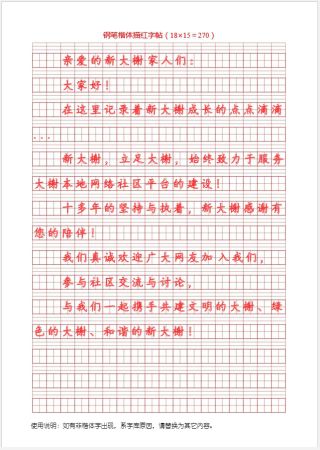 钢笔楷体描红字帖（18×15＝270）
亲爱的新大榭家人们：
大家好！
在这里记录着新大榭成长的点点滴滴
...
新大榭，立足大榭，始终致力于服务
大榭本地网络社区平台的建设！
十多年的坚持与执着，新大榭感谢有
您的陪伴！
我们真诚欢迎广大网友加入我们，
参与社区交流与讨论，
与我们一起携手共建文明的大榭、绿
色的大榭、和谐的新大榭！
使用说明：如有非楷体字出现，系字库原因，请替换为其它内容。